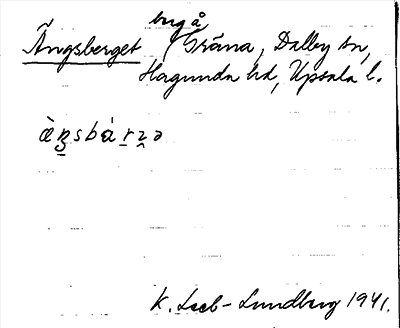 bug å
Ängsberget / Gräna, Dalby sn,
Hagunda hd, Upsala l.
ὰ̈ŋsbárʒə
K. Leeb-Lundberg 1941.